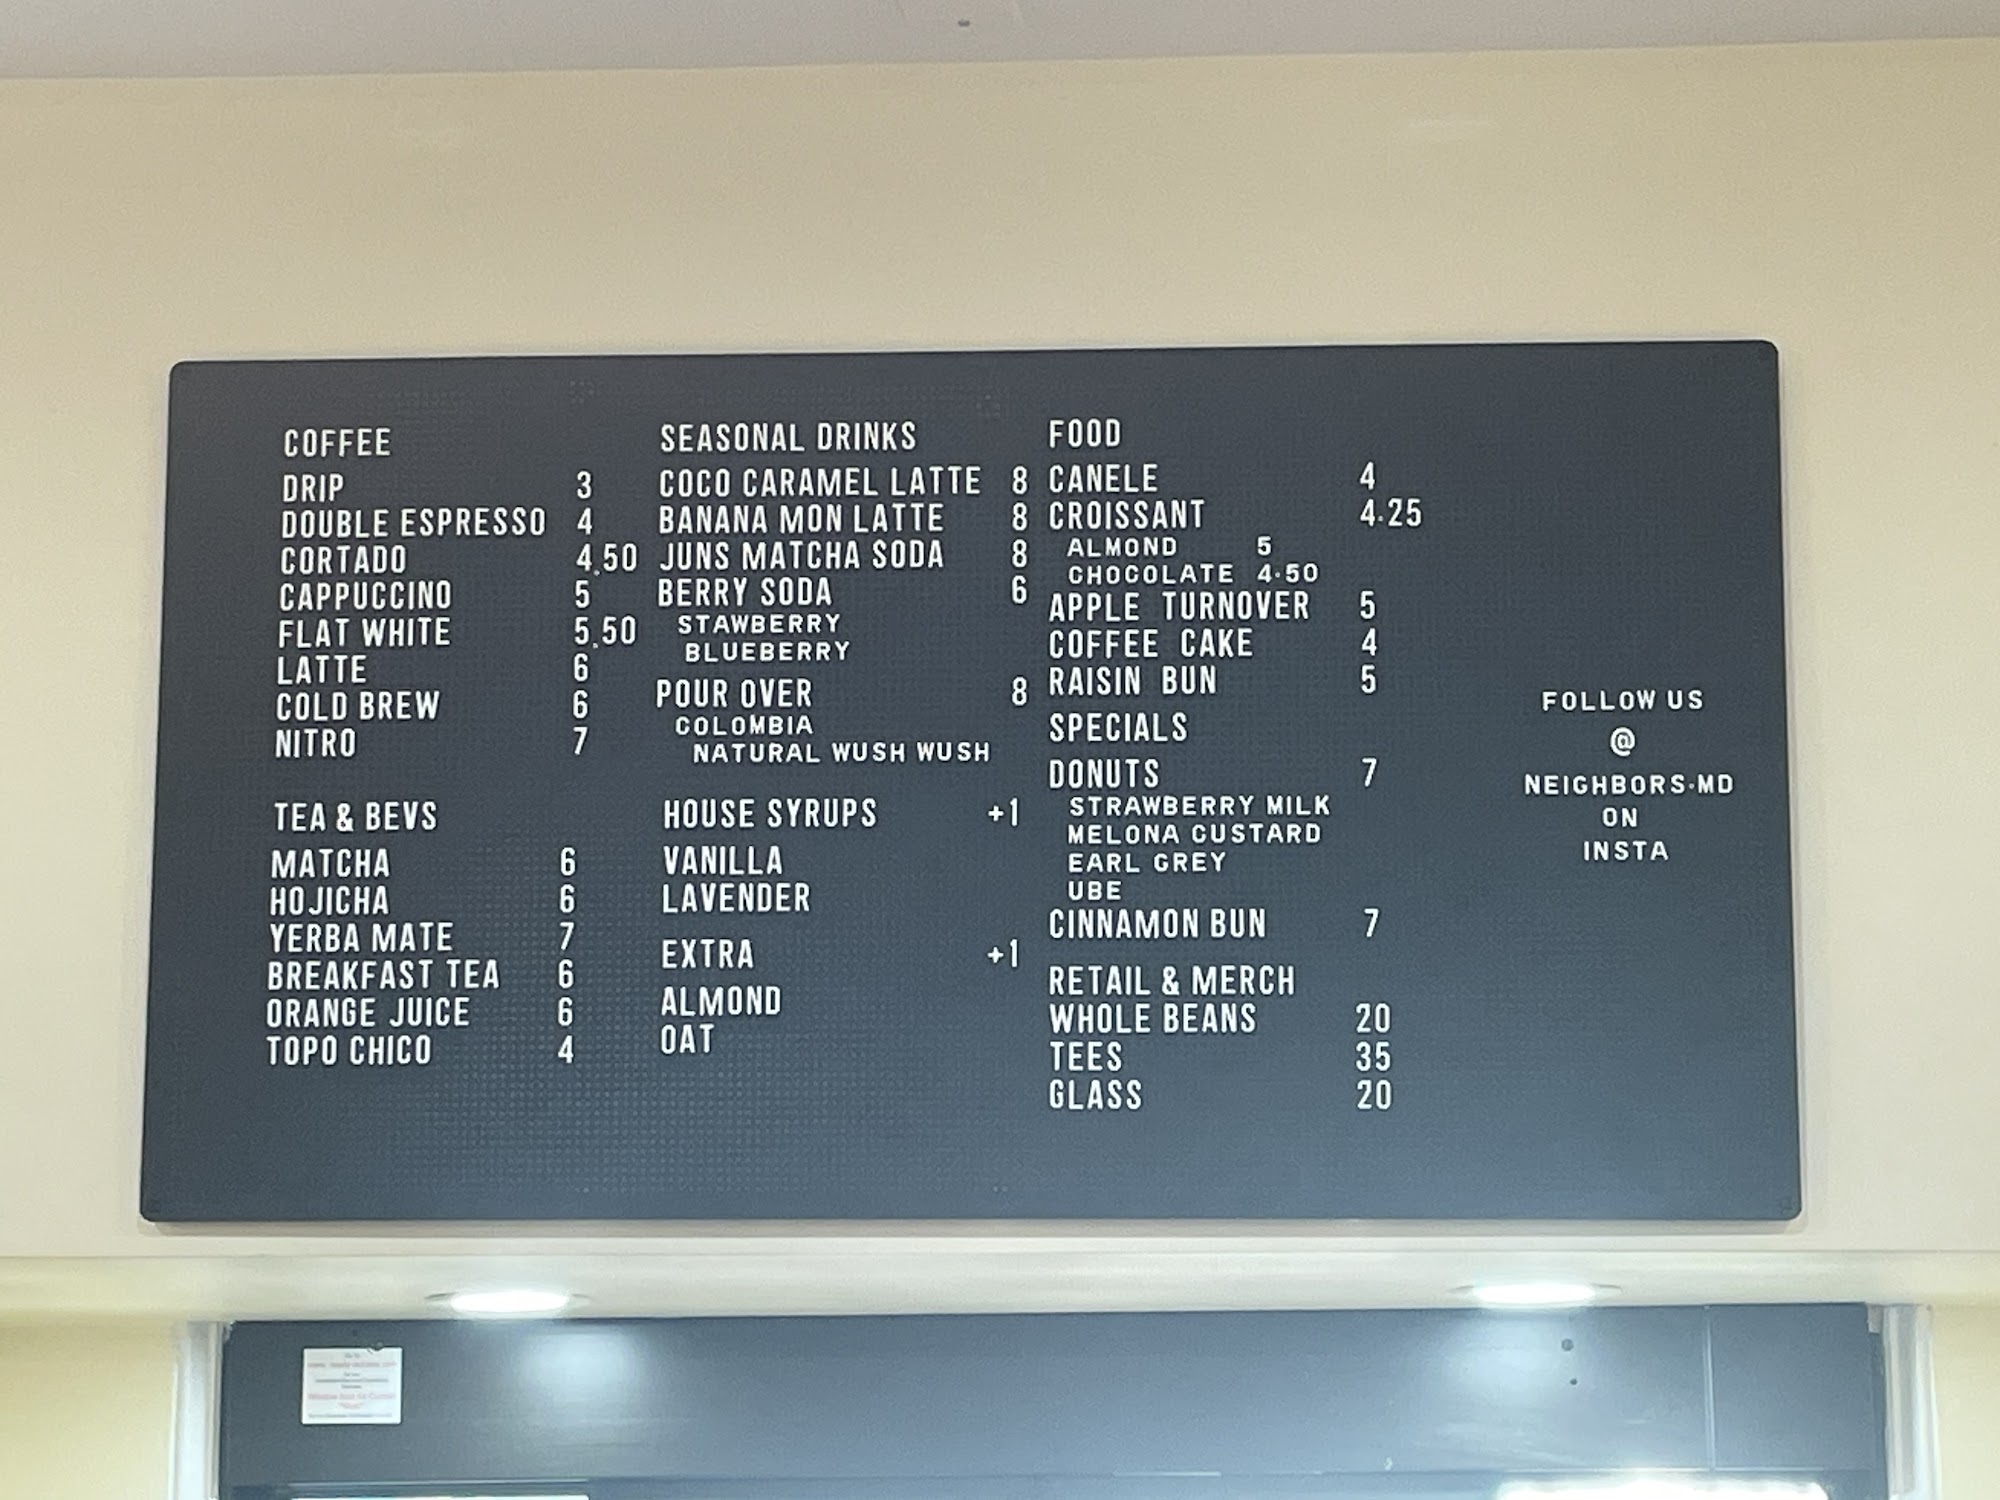 COFFEE
DRIP 3
DOUBLE ESPRESSO 4
CORTADO 4.50
CAPPUCCINO 5
FLAT WHITE 5.50
LATTE 6
COLD BREW 6
NITRO 7
TEA & BEVS
MATCHA 6
HOJICHA 6
YERBA MATE 7
BREAKFAST TEA 6
ORANGE JUICE 6
TOPO CHICO 4
SEASONAL DRINKS
COCO CARAMEL LATTE 8
BANANA MON LATTE 8
JUNS MATCHA SODA 8
BERRY SODA 6
STAWBERRY
BLUEBERRY
POUR OVER 8
COLOMBIA
NATURAL WUSH WUSH
HOUSE SYRUPS +1
VANILLA
LAVENDER
EXTRA +1
ALMOND
OAT
FOOD
CANELE 4
CROISSANT 4.25
ALMOND 5
CHOCOLATE 4.50
APPLE TURNOVER 5
COFFEE CAKE 4
RAISIN BUN 5
SPECIALS
DONUTS 7
STRAWBERRY MILK
MELONA CUSTARD
EARL GREY
UBE
CINNAMON BUN 7
RETAIL & MERCH
WHOLE BEANS 20
TEES 35
GLASS 20
FOLLOW US
@
NEIGHBORS.MD
ON
INSTA